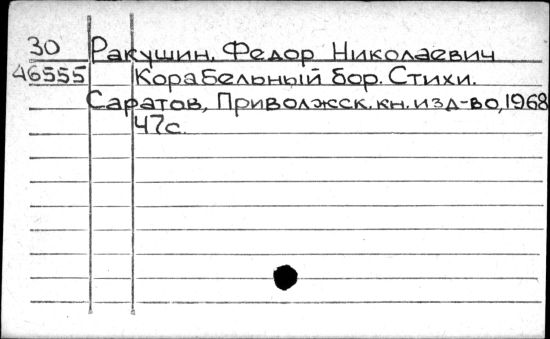 30 Ракушин, Федор Николаевич
46555 Корабельный бор. Стихи.
Саратов, Приволжск. кн. изд-во, 1968
47с.